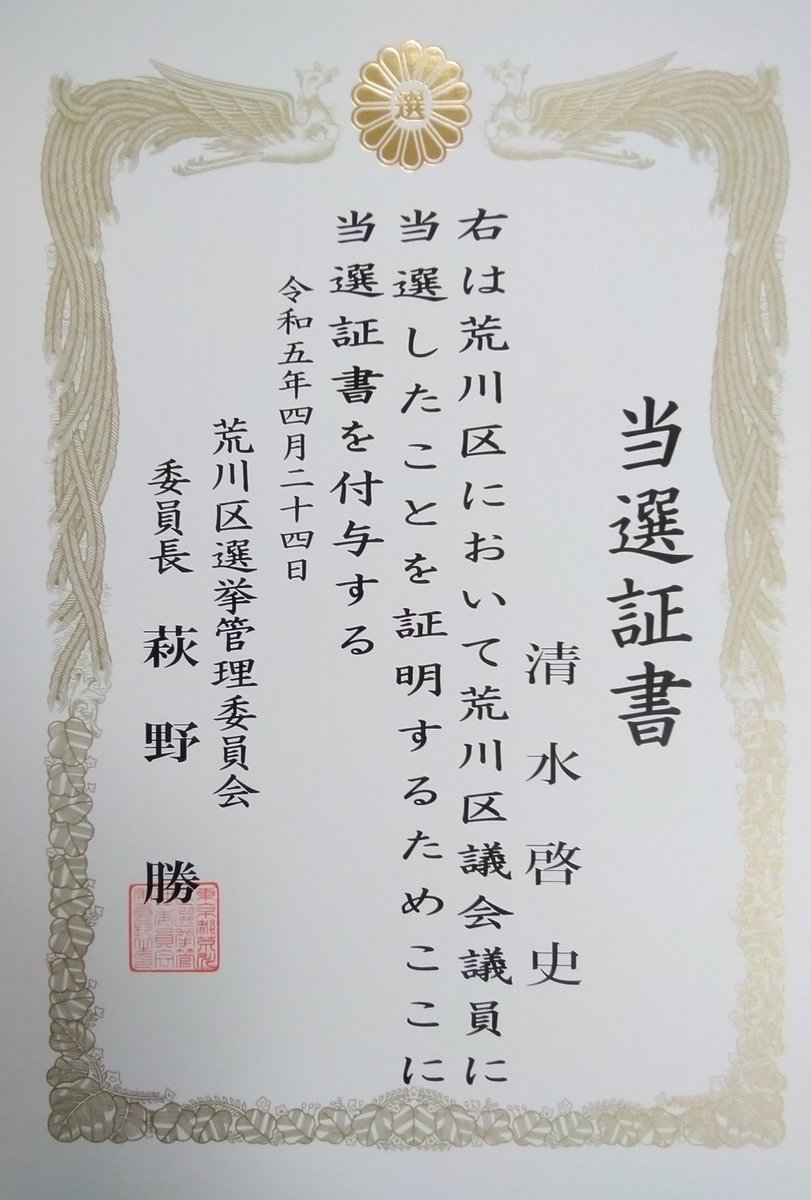 選
当選証書
清水啓史
右は荒川区において荒川区議会議員に
当選したことを証明するためここに
当選証書を付与する
令和五年四月二十四日
荒川区選挙管理委員会
委員長 萩野勝